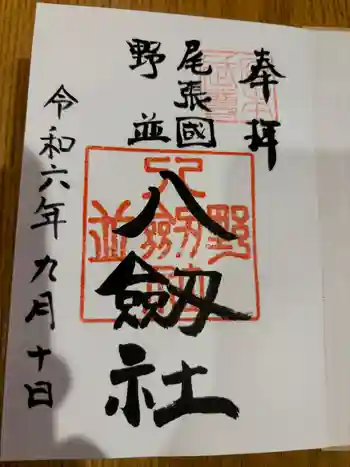 奉拝
尾張國
野並
八劔社
令和六年九月十日